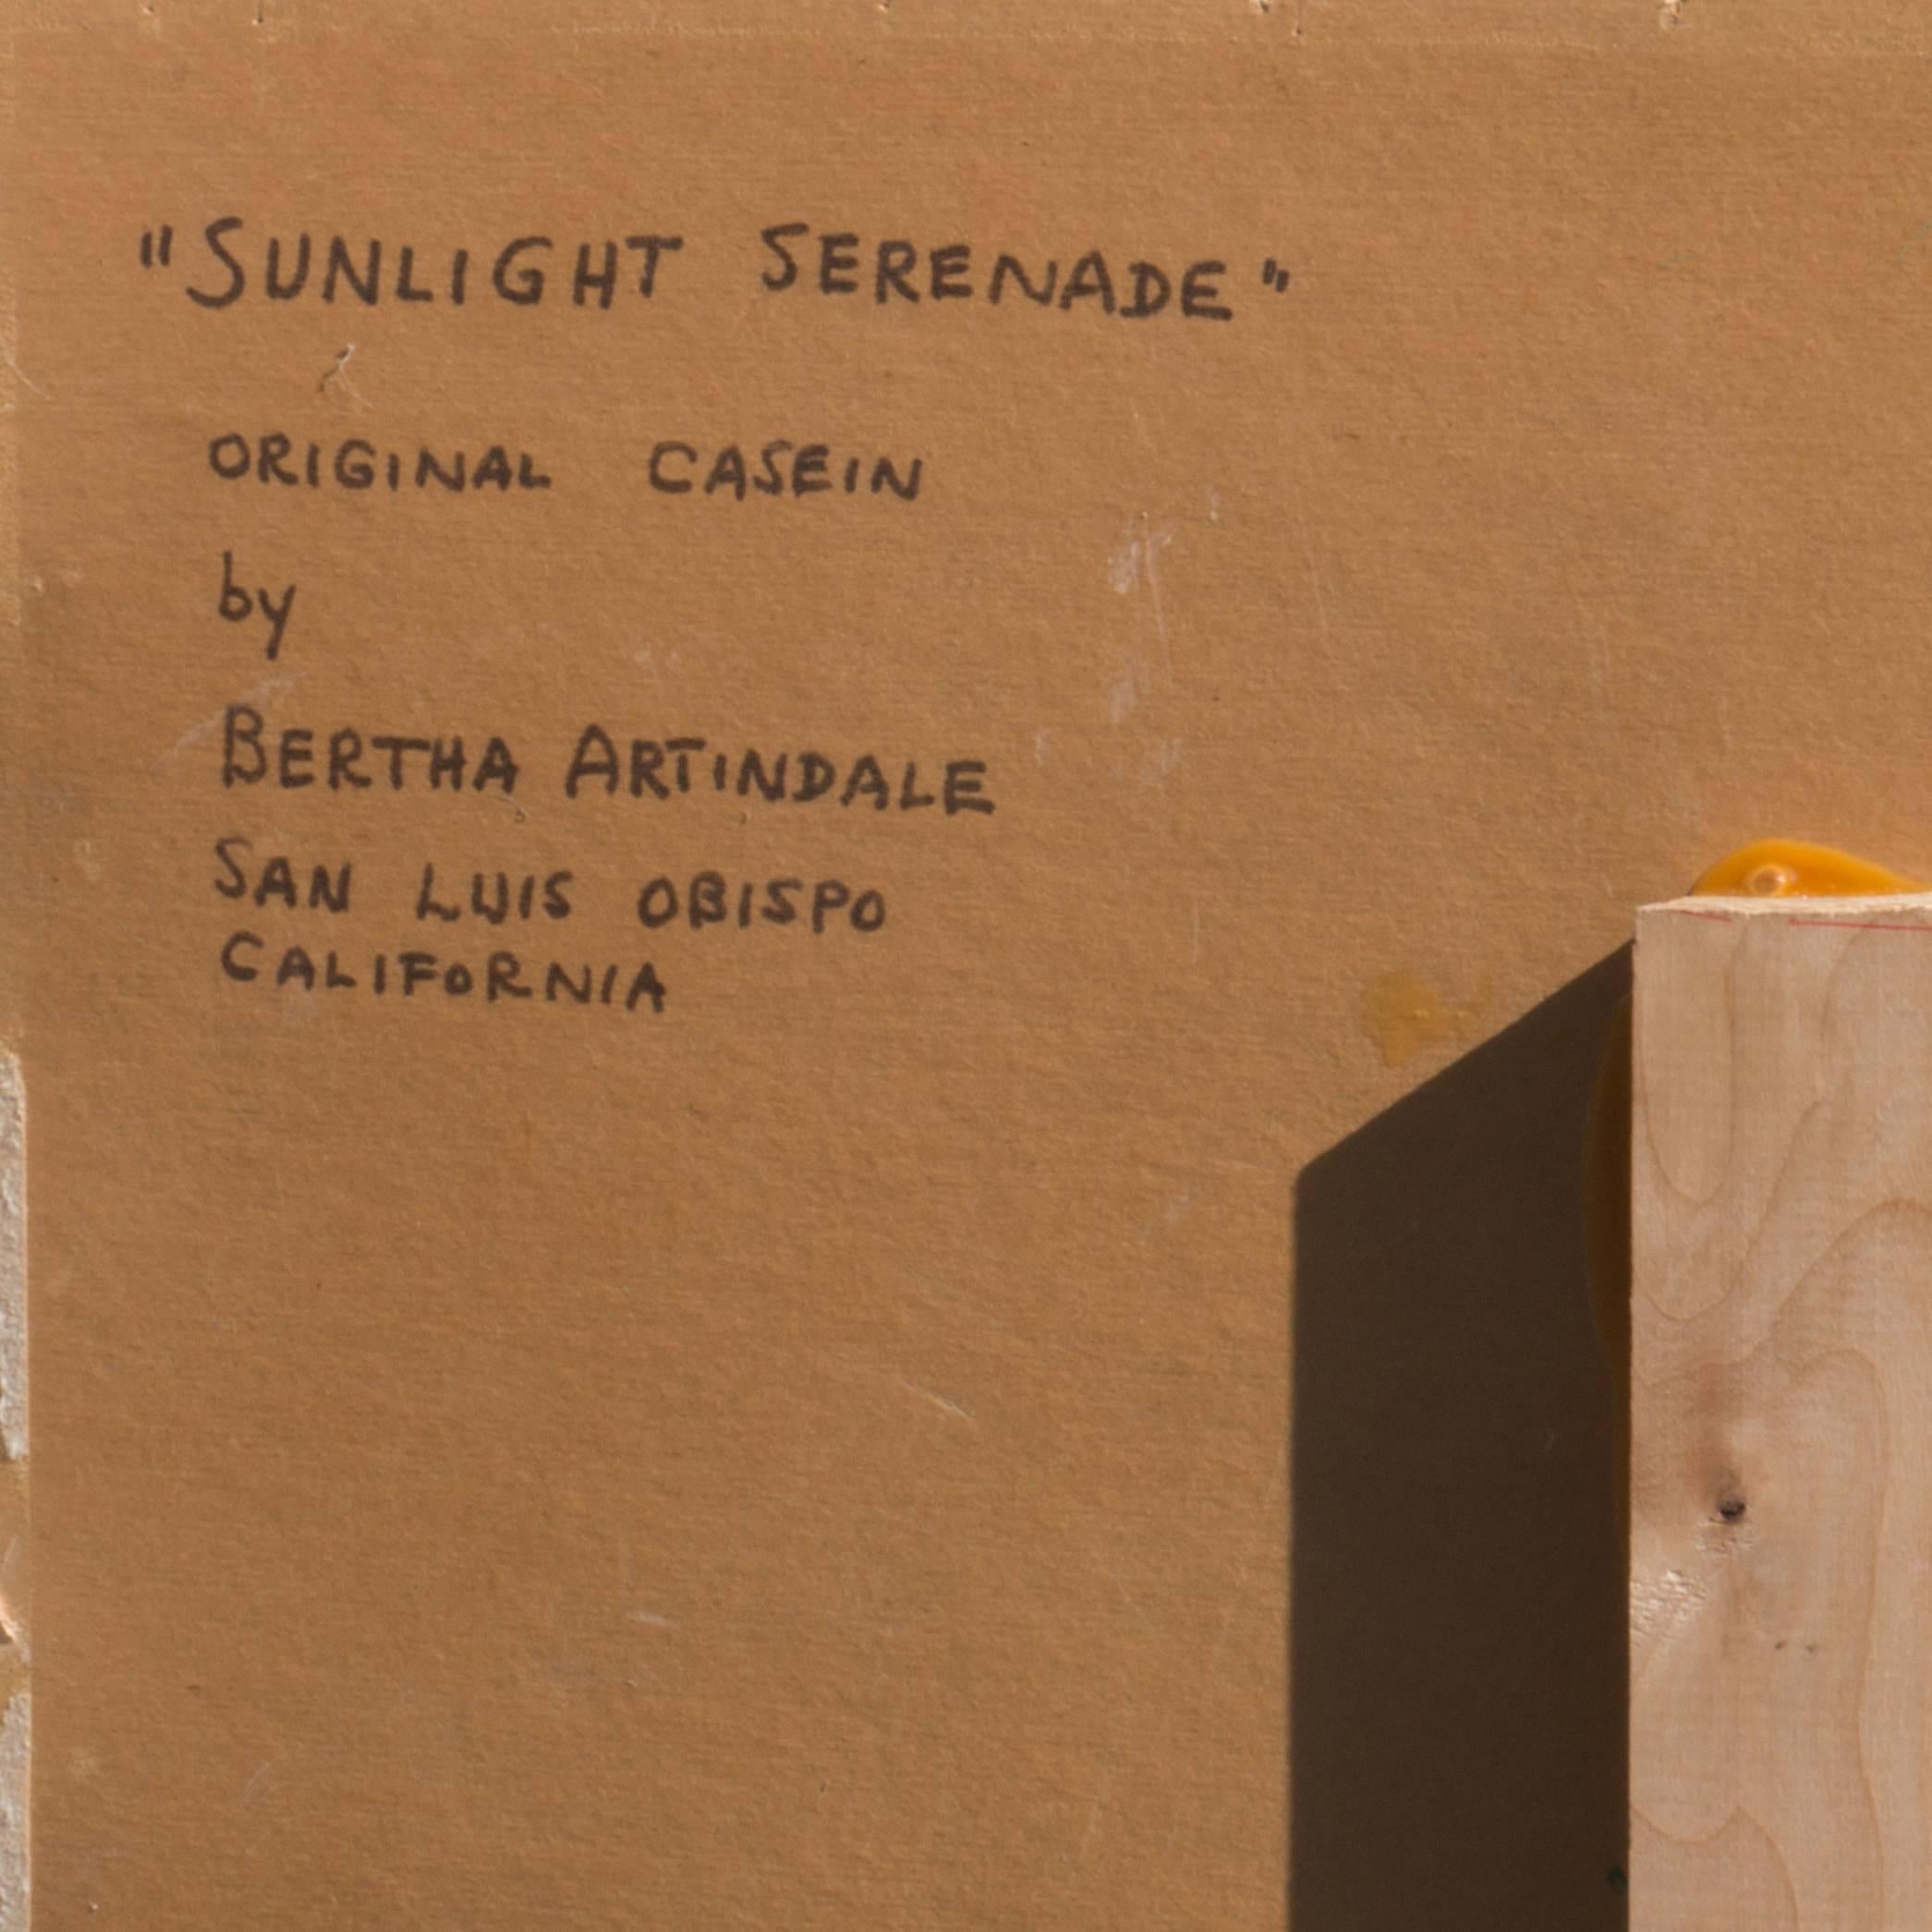 "SUNLIGHT SERENADE"
ORIGINAL CASEIN
by
BERTHA ARTINDALE
SAN LUIS OBISPO
CALIFORNIA